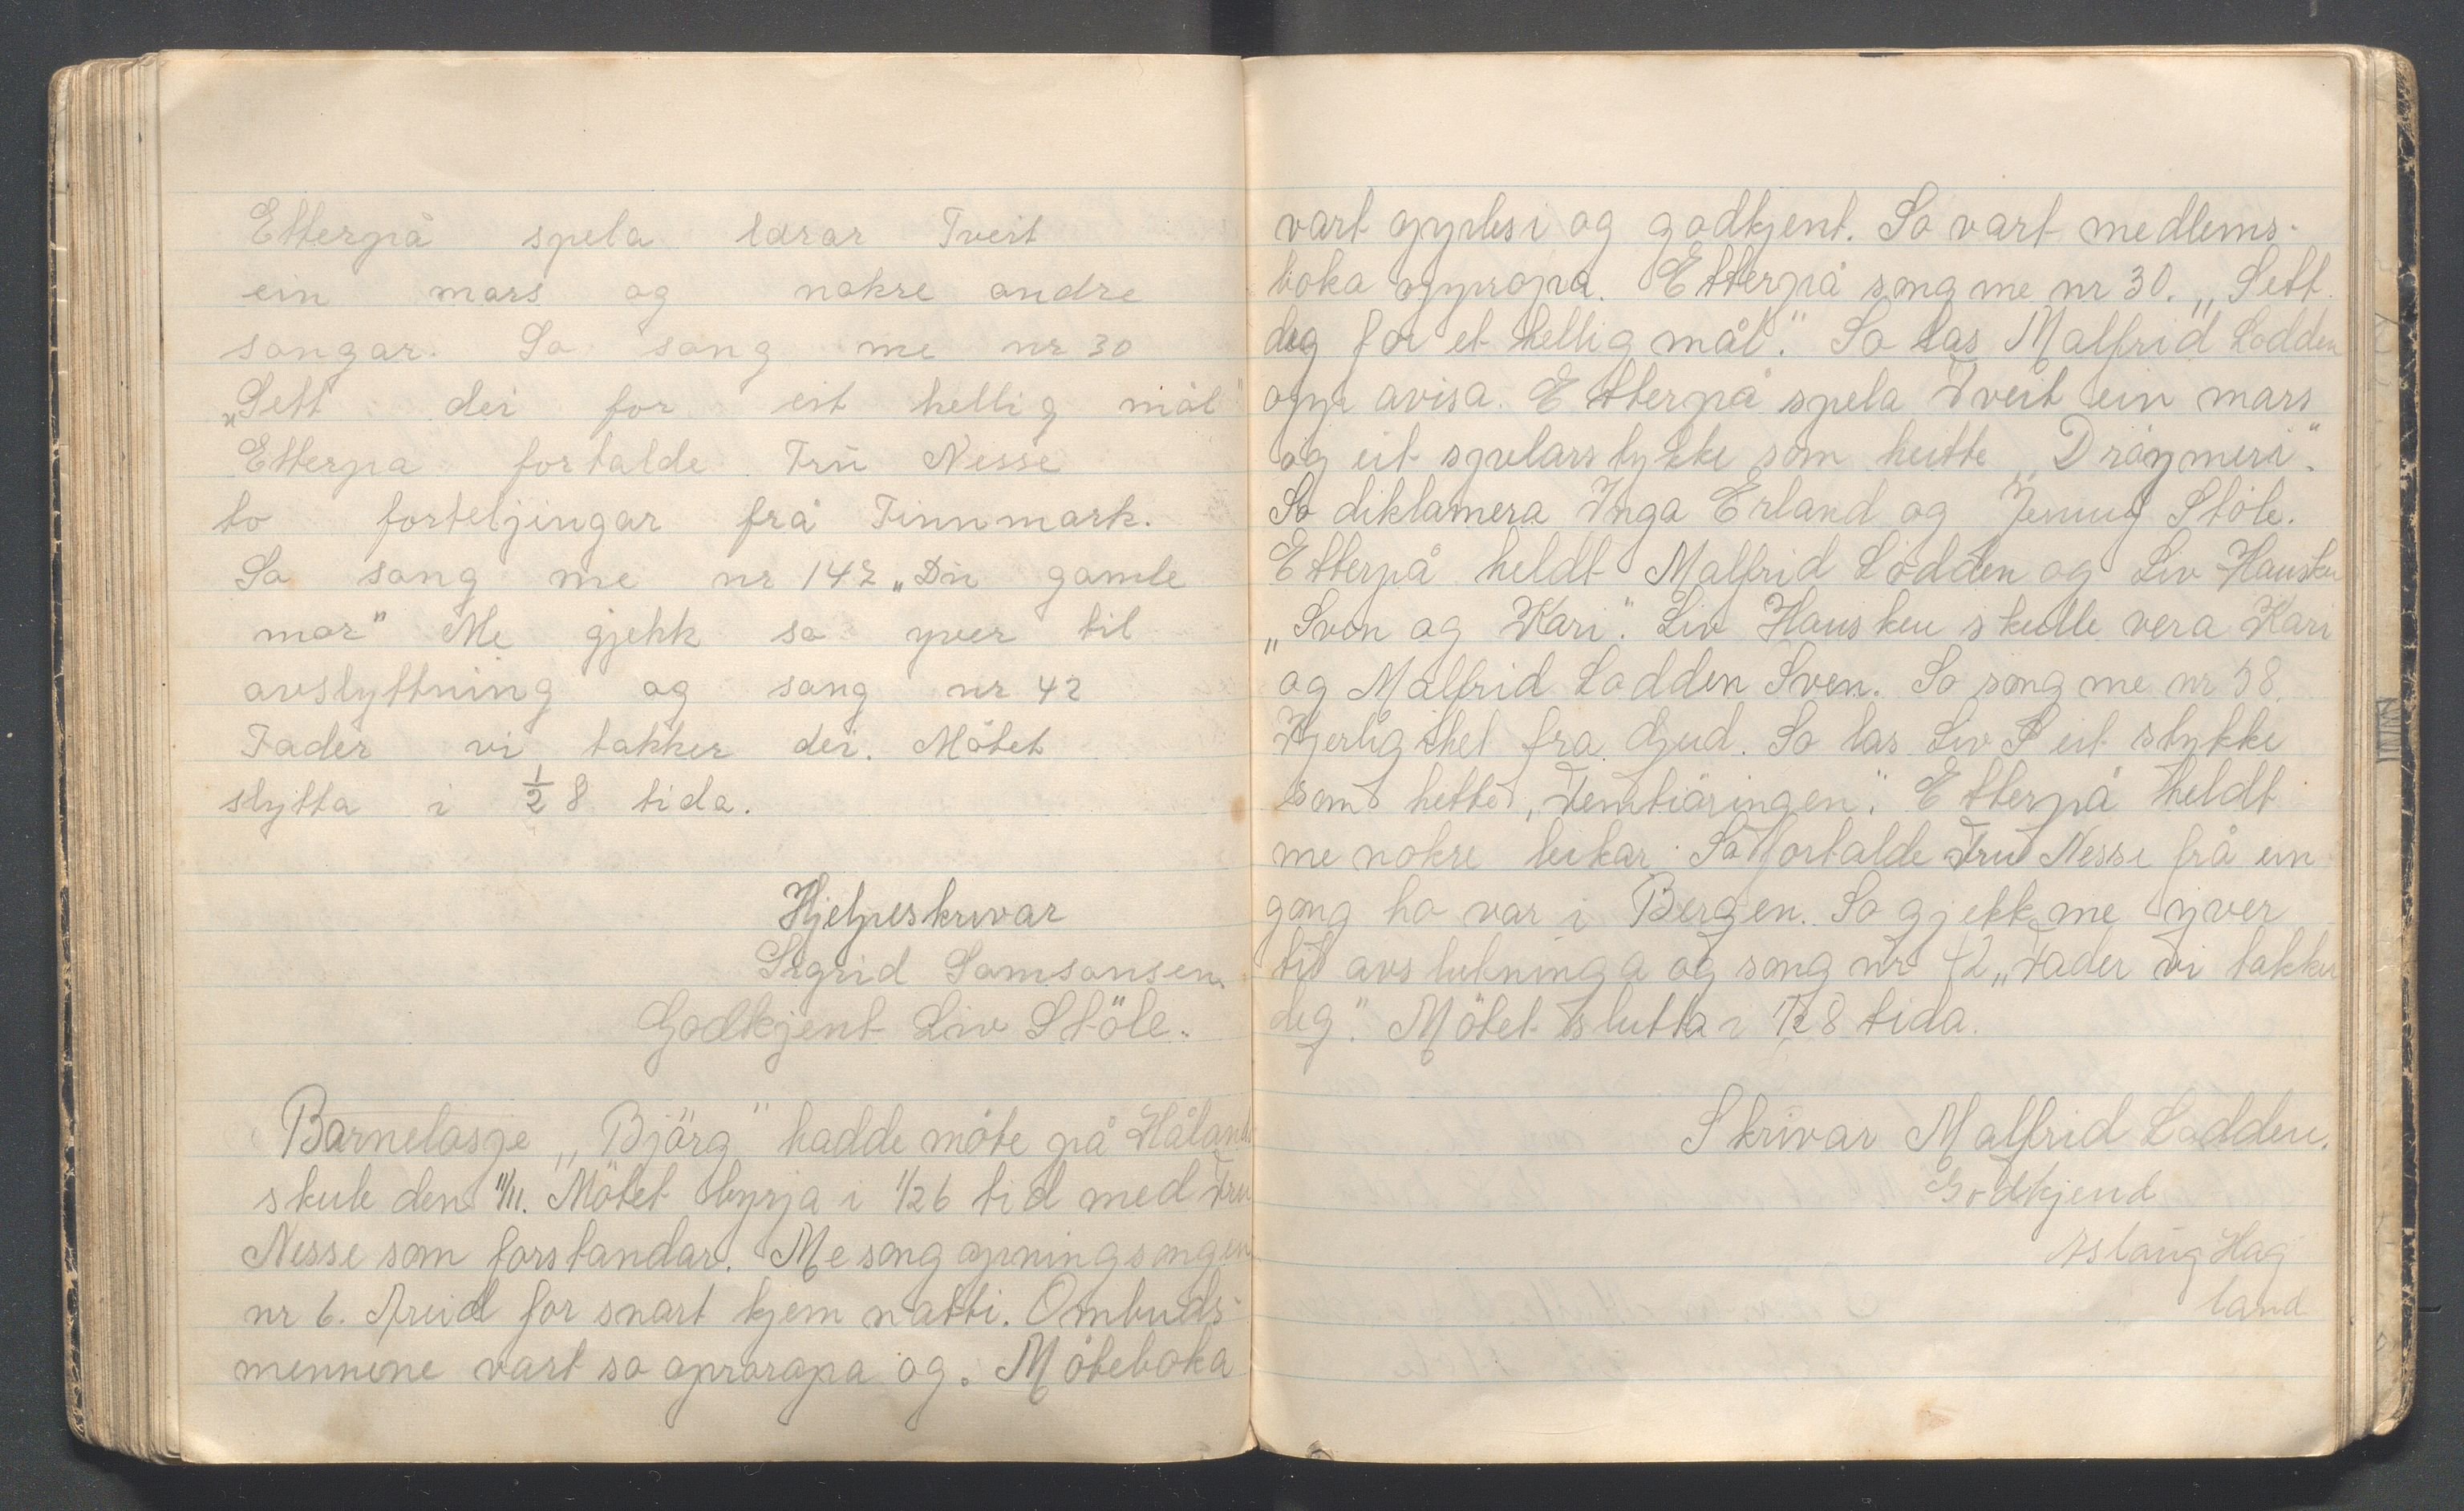 Etterpå spela lærar Tveit
ein mars og nokre andre
songar. So song me nr 30
„Sett dei for eit hellig mål"
Etterpa fortalde Fru Nesse
to forteljingar frå Finnmark.
So song me nr 142 „Du gamle
mor" Me gjekk so yver til
avslyttning og song nr 42
Fader vi takker dei. Mötet
slytta i ½ 8 tida.
Hjelpeskrivar
Sigrid Samsonsen.
Godkjent Liv Stöle.
Barnelosje „Björg" hadde möte på Håland
skule den 11/11. Mötet byrja i 1/2 6 tid med Fru
Nesse som forstandar. Me song opningsongen
nr 6. Areid for snart kjem natti. Ombuds-
mennene vart so opropa og. Möteboka
vart opplesi og godkjent. So vart medlems-
boka oppropa. Etterpå song me nr 30. „Sett
dig for et hellig mål". So las Malfrid Lodden
opp avisa. Etterpå spela Tveit ein mars
og eit spelarstykke som heitte „Dröymeri".
So diklamera Inga Erland og Jenny Stöle.
Etterpå heldt Malfrid Lodden og Liv Hausken
„Sven og Kari". Liv Hausken skulle vera Kari
og Malfrid Lodden Sven. So song me nr 38.
Kjerlighet fra Gud. So las Liv S eit stykke
som hette „Femtiöringen". Etterpå heldt
me nokre leikar. So fortalde Fru Nesse frå ein
gong ho var i Bergen. So gjekk me yver
til avslukninga og song nr 42 „Fader vi takker
dig". Mötet slutta i 1/2 8 tida.
Skrivar Malfrid Lodden.
Godkjend
Aslaug Hag
land